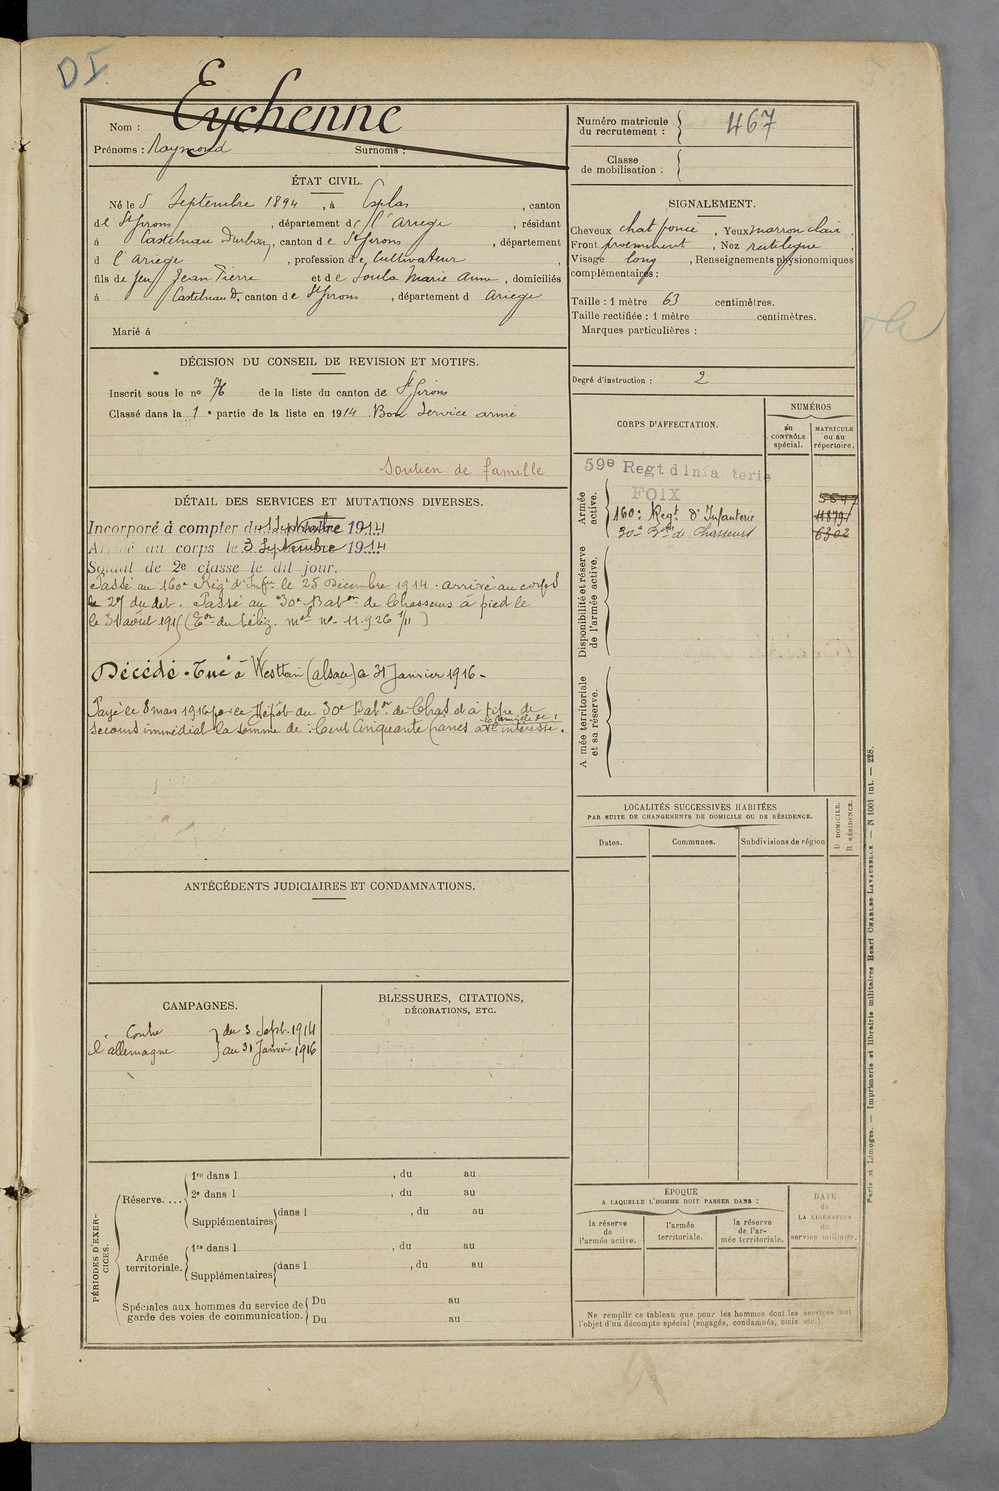 DI
Nom : Eychenne
Prénoms : Raymond Surnoms :
Numéro matricule
du recrutement : 467
Classe
de mobilisation :
ÉTAT CIVIL.
Né le 5 Septembre 1894, à Esplas, canton
de St Girons, département de l'Ariège, résidant
à Castelnau Durban, canton de St Girons, département
d l'Ariège, profession de Cultivateur,
fils de feu Jean Pierre et de Soula Marie Anne, domiciliés
à Castelnau D., canton de St Girons, département d Ariège
Marié à
SIGNALEMENT.
Cheveux chat foncé, Yeux marron clair,
Front proéminent, Nez rectiligne,
Visage long, Renseignements physionomiques
complémentaires :
Taille : 1 mètre 63 centimètres.
Taille rectifiée : 1 mètre centimètres.
Marques particulières :
Degré d'instruction : 2
DÉCISION DU CONSEIL DE REVISION ET MOTIFS.
Inscrit sous le no 76 de la liste du canton de St Girons
Classé dans la 1e partie de la liste en 1914 Bon service armé
Soutien de famille
DÉTAIL DES SERVICES ET MUTATIONS DIVERSES.
Incorporé à compter du 1 Septembre 1914
Arrivé au corps le 3 Septembre 1914
Soldat de 2e classe le dit jour.
Passé au 160e Rég d'Infie le 25 Décembre 1914. arrivé au corps
le 27 du det. Passé au 30e Baton de Chasseurs à pied le
le 31 août 1915 (Eon du télég. mel no 11.926 1/11)
Décédé. Tué à (alsace) le 31 Janvier 1916 -
Payé le 8 mars 1916 par le Dépôt du 30e Baton de Chas. à titre de
secours immédiat la somme de : Cent Cinquante francs à la famille de l'intéressé.
CORPS D'AFFECTATION.
NUMÉROS
au
CONTRÔLE
spécial.
MATRICULE
ou au
répertoire.
Armée
active.
59e Regt d'Infanterie
FOIX
160e Regt d'Infanterie
30e Bon de Chasseurs 6302
Disponibilité et réserve
de l'armée active.
Armée territoriale
et sa réserve.
LOCALITÉS SUCCESSIVES HABITÉES
PAR SUITE DE CHANGEMENTS DE DOMICILE OU DE RÉSIDENCE.
Dates. Communes. Subdivisions de région
D DOMICILE.
R RÉSIDENCE.
ANTÉCÉDENTS JUDICIAIRES ET CONDAMNATIONS.
CAMPAGNES.
Contre du 3 Sept. 1914
l'allemagne au 31 Janvier 1916
BLESSURES, CITATIONS,
DÉCORATIONS, ETC.
PÉRIODES D'EXERCICES.
Réserve....
1re dans l , du au
2e dans l , du au
Supplémentaires dans l , du au
Armée
territoriale.
1re dans l , du au
Supplémentaires dans l , du au
Spéciales aux hommes du service de
garde des voies de communication.
Du au
Du au
ÉPOQUE
A LAQUELLE L'HOMME DOIT PASSER DANS :
la réserve
de
l'armée active.
l'armée
territoriale.
la réserve
de l'ar-
mée territoriale.
DATE
de
LA LIBÉRATION
du
service militaire.
Ne remplir ce tableau que pour les hommes dont les services font
l'objet d'un décompte spécial (engagés, condamnés, omis etc.)
Paris et Limoges. — Imprimerie et librairie militaires Henri CHARLES-LAVAUZELLE. — N 1001 int. — 228.